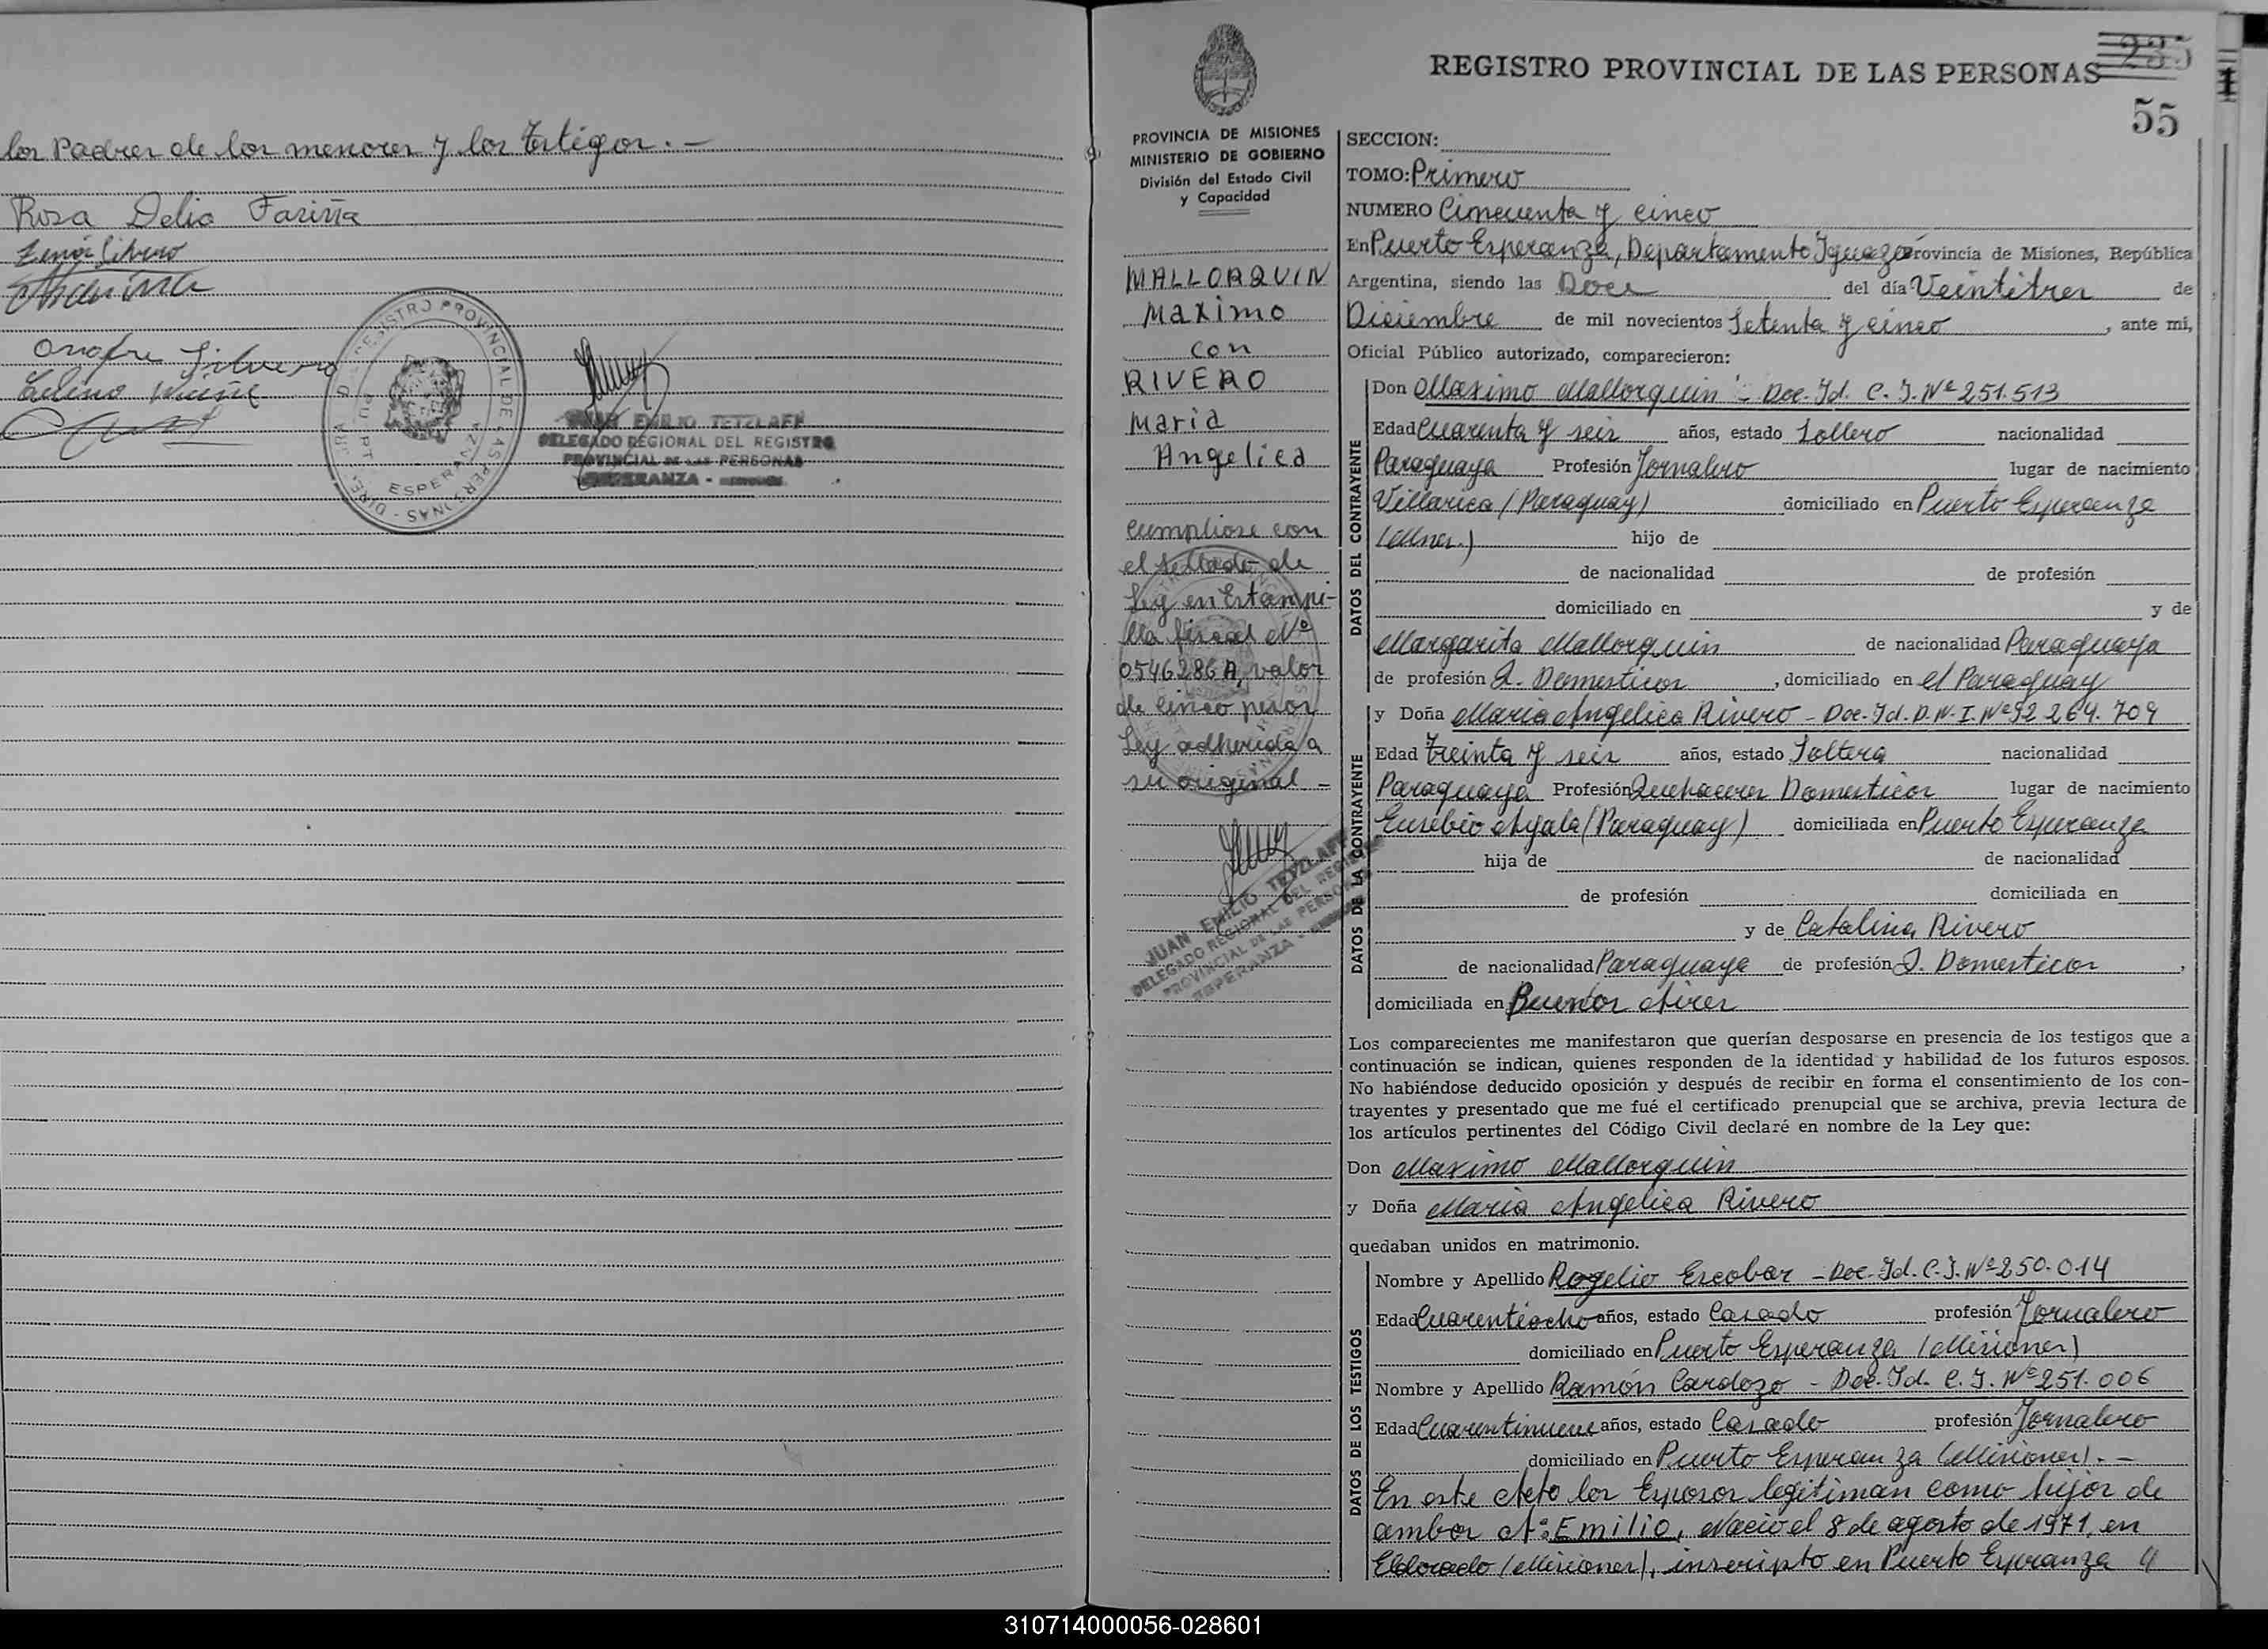 los Padres de los menores y los testigos. -
Rosa Delia Fariña
Onofre Silvero
REGISTRO PROVINCIAL DE LAS PERSONAS
ESPERANZA
JUAN EMILIO TETZLAFF
DELEGADO REGIONAL DEL REGISTRO
PROVINCIAL DE LAS PERSONAS
ESPERANZA -
PROVINCIA DE MISIONES
MINISTERIO DE GOBIERNO
División del Estado Civil
y Capacidad
MALLORQUIN
Maximo
con
RIVERO
Maria
Angelica
cumpliose con
el sellado de
Ley en Estampi-
lla fiscal Nº
0546286A, valor
de cinco pesos
Ley adherida a
su original -
JUAN EMILIO TETZLAFF
DELEGADO REGIONAL DEL REGISTRO
PROVINCIAL DE LAS PERSONAS
ESPERANZA -
REGISTRO PROVINCIAL DE LAS PERSONAS
235
55
SECCION:
TOMO: Primero
NUMERO Cincuenta y cinco
En Puerto Esperanza, Departamento Iguazú Provincia de Misiones, República
Argentina, siendo las Doce del día Veintitres de
Diciembre de mil novecientos Setenta y cinco, ante mí,
Oficial Público autorizado, comparecieron:
DATOS DEL CONTRAYENTE
Don Maximo Mallorquin - Doc. Id. C. I. Nº 251.513
Edad Cuarenta y seis años, estado Soltero nacionalidad
Paraguaya Profesión Jornalero lugar de nacimiento
Villarica (Paraguay) domiciliado en Puerto Esperanza
(Mnes.) hijo de
de nacionalidad de profesión
domiciliado en y de
Margarita Mallorquin de nacionalidad Paraguaya
de profesión Q. Domesticos, domiciliado en el Paraguay
DATOS DE LA CONTRAYENTE
y Doña Maria Angelica Rivero - Doc. Id. D. N. I. Nº 92 264. 709
Edad treinta y seis años, estado Soltera nacionalidad
Paraguaya Profesión Quehaceres Domesticos lugar de nacimiento
Eusebio Ayala (Paraguay) domiciliada en Puerto Esperanza
hija de de nacionalidad
de profesión domiciliada en
y de Catalina Rivero
de nacionalidad Paraguaya de profesión Q. Domesticos,
domiciliada en Buenos Aires
Los comparecientes me manifestaron que querían desposarse en presencia de los testigos que a
continuación se indican, quienes responden de la identidad y habilidad de los futuros esposos.
No habiéndose deducido oposición y después de recibir en forma el consentimiento de los con-
trayentes y presentado que me fué el certificado prenupcial que se archiva, previa lectura de
los artículos pertinentes del Código Civil declaré en nombre de la Ley que:
Don Maximo Mallorquin
y Doña Maria Angelica Rivero
quedaban unidos en matrimonio.
DATOS DE LOS TESTIGOS
Nombre y Apellido Rogelio Escobar - Doc. Id. C. I. Nº 250.014
Edad Cuarentiocho años, estado Casado profesión Jornalero
domiciliado en Puerto Esperanza (Misiones)
Nombre y Apellido Ramón Cardozo - Doc. Id. C. I. Nº 251.006
Edad Cuarentinueve años, estado Casado profesión Jornalero
domiciliado en Puerto Esperanza (Misiones). -
En este Acto los Esposos legitiman como hijos de
ambos A: Emilio, Nació el 8 de agosto de 1971, en
Eldorado (Misiones), inscripto en Puerto Esperanza
310714000056-028601